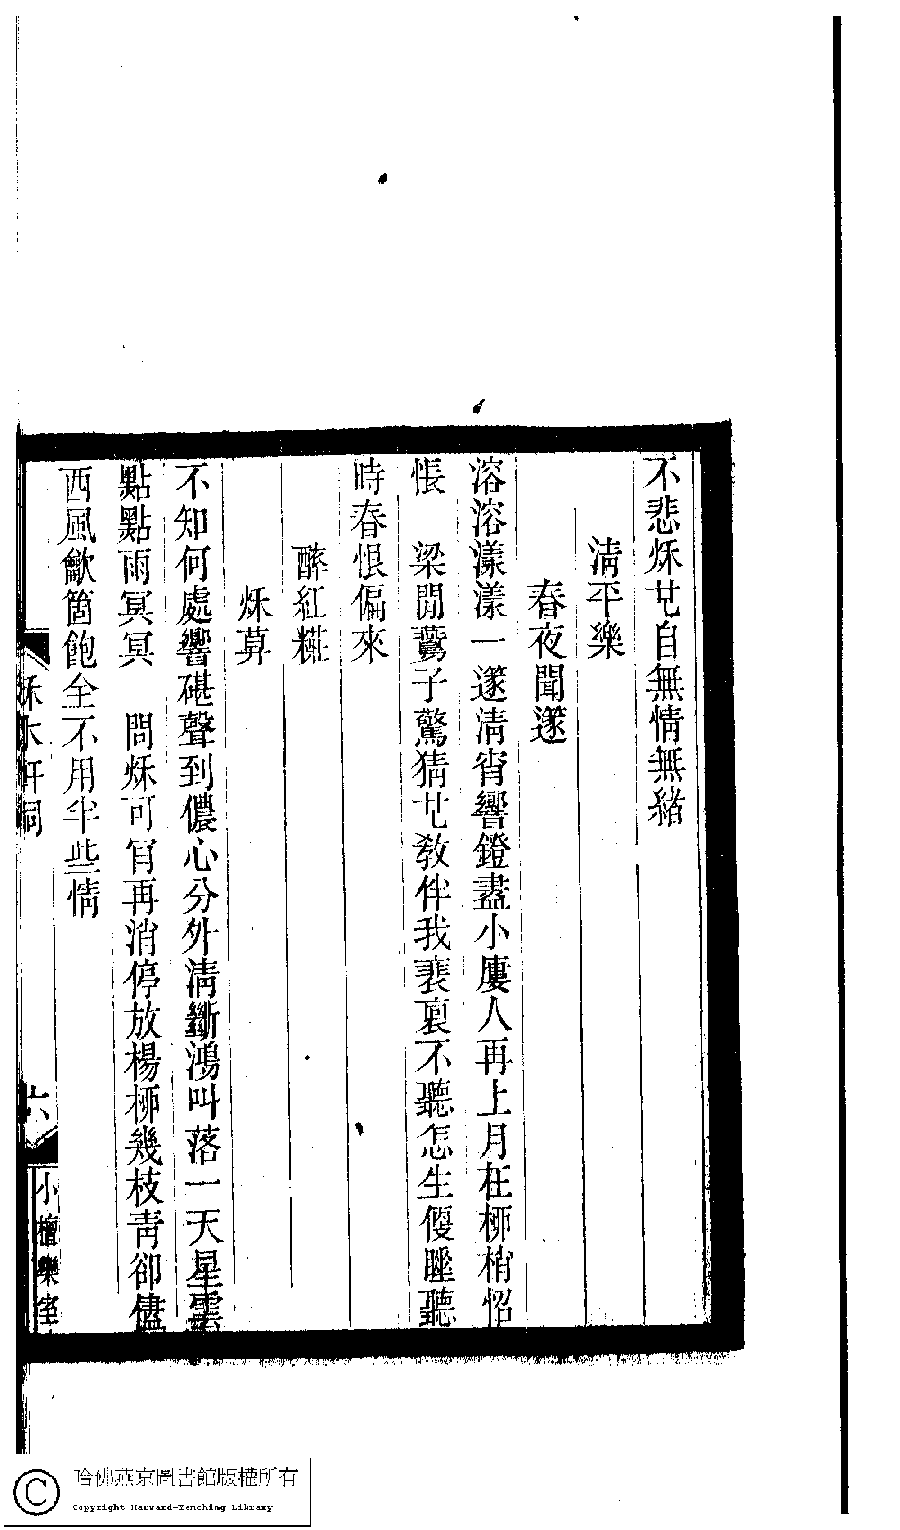 不悲秌花自無情無緒
清平樂
春夜聞篴
溶溶漾漾一篴清宵響鐙盡小廔人再上月在桺梢怊
悵　梁閒鷰子驚猜花教伴我裵裏不聽怎生偃睡聽
時春恨偏來
醉紅糚
秌草
不知何處響碪聲到儂心分外清斷鴻叫落一天星雲
點點雨冥冥　問秌可肎再消停放楊桺幾枝青卻儘
西風歡箇飽全不用半些情
秌水軒詞
六
小檀欒室
哈佛燕京圖書館版權所有
Copyright Harvard-Yenching Library